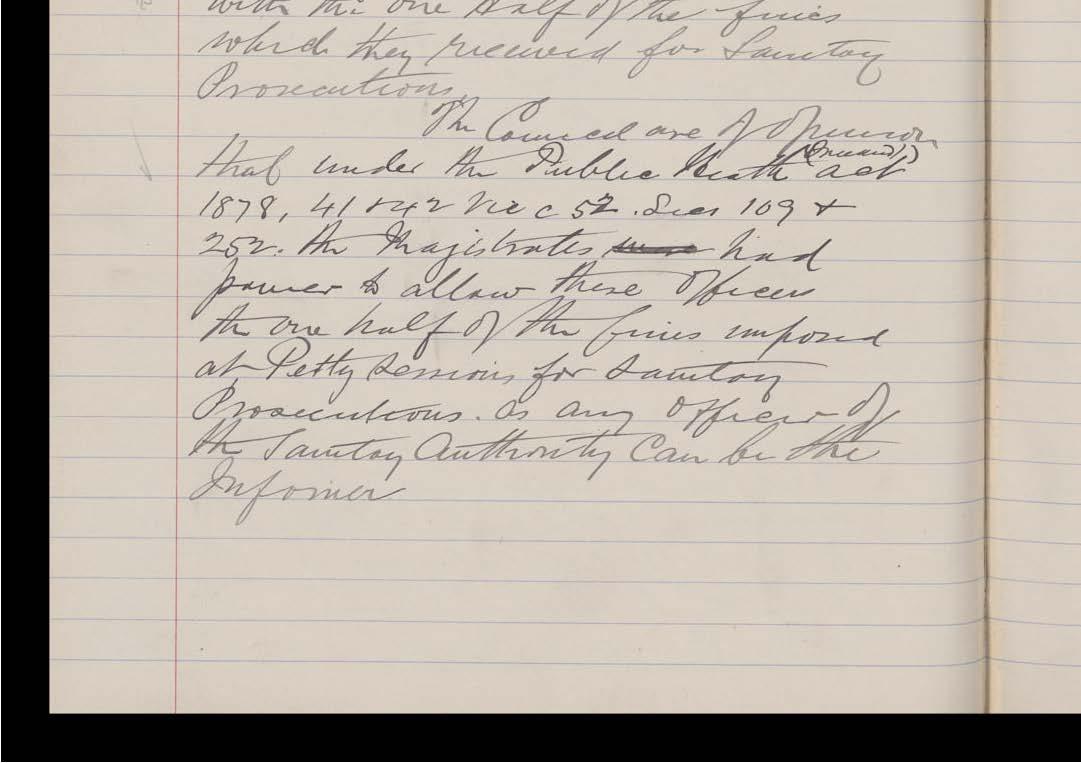 with the one Half of the fines
which they received for Sanitary
Prosecutions.
The Council are of Opinion
that under the Public Health (Ireland) act
1878, 41 & 42 Vic c 52. Secs 109 &
252. the Magistrates had
power to allow these Officers
the one half of the fines imposed
at Petty Sessions for Sanitary
Prosecutions. as any Officer of
the Sanitary Authority Can be the
Informer